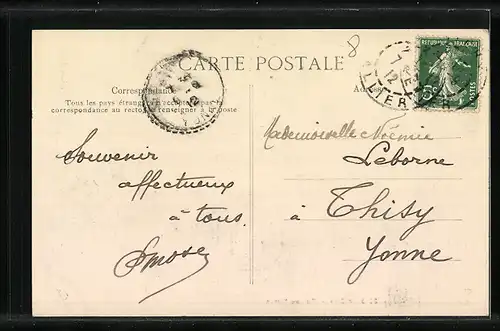 CARTE POSTALE
8
Correspondance
Tous les pays étrangers n'acceptent pas la
correspondance au recto se renseigner à la poste
RÉPUBLIQUE FRANÇAISE
5c
POSTES
Souvenir
affectueux
à tous.
Mademoiselle Noémie
Leborne
à
Thisy
Yonne